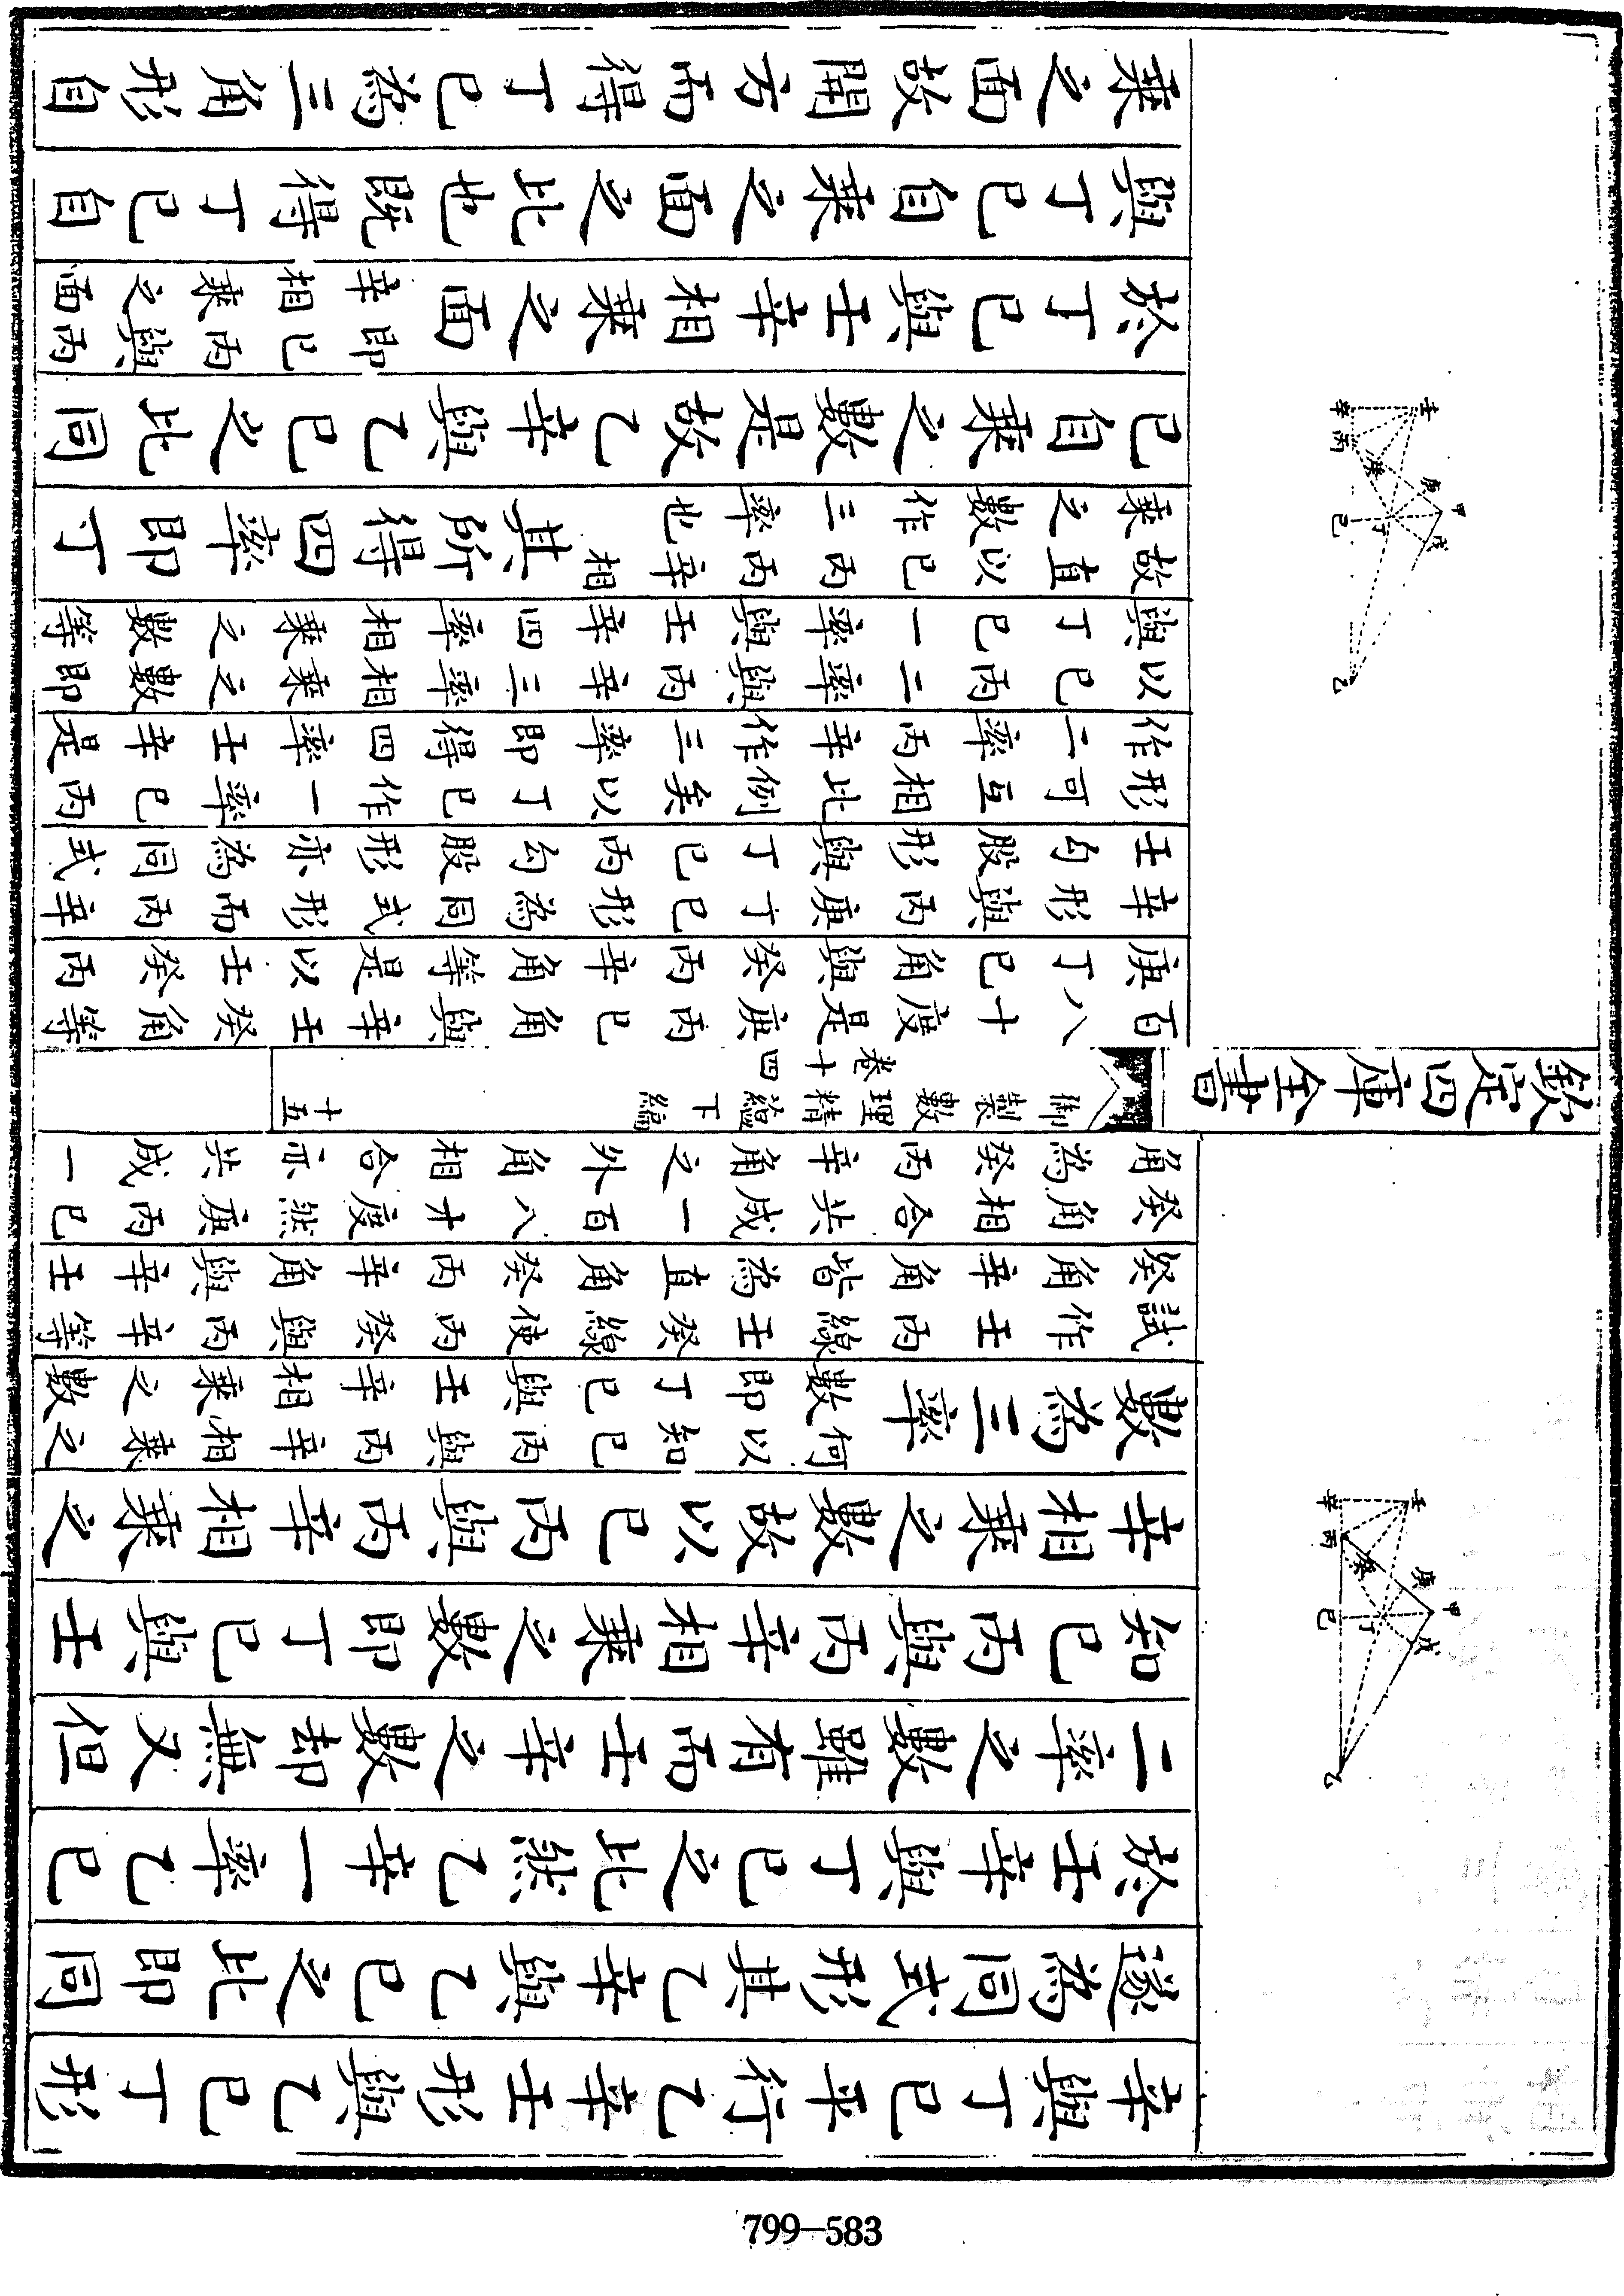 辛與丁巳平行乙辛壬形與乙巳丁形
遂為同式形其乙辛與乙巳之比即同
於壬辛與丁巳之比然乙辛一率乙巳
二率之數雖有而壬辛之數却無又但
知巳丙與丙辛相乘之數即丁巳與壬
辛相乘之數故以巳丙與丙辛相乘之
數為三率何以知巳丙與丙辛相乘之
數即丁巳與壬辛相乘之數
試作壬丙線壬癸線使丙癸與丙辛等
癸角辛角皆為直角癸丙辛角與辛壬
癸角相合共成一百八十度然庚丙巳
角為癸丙辛角之外角相合亦共成一
壬
庚
甲
戊
癸
丁
辛
丙
巳
乙
欽定四庫全書
御製數理精蘊下編
卷十四
十五
百八十度是庚丙巳角與辛壬癸角等
庚丁巳角與癸丙辛角等是以壬癸丙
辛形與丙庚丁巳形為同式形而丙辛
壬勾股形與丁巳丙勾股形亦為同式
形可互相比例矣以丁巳作一率巳丙
作二率丙辛作三率即得四率壬辛是
以巳丙二率與丙辛三率相乘之數即
與丁巳一率與壬辛四率相乘之數等
故直以巳丙丙辛相
乘之數作三率也其所得四率即丁
巳自乘之數是故乙辛與乙巳之比同
於丁巳與壬辛相乘之面即巳丙與丙
辛相乘之面
與丁巳自乘之面之比也既得丁巳自
乘之面故開方而得丁巳為三角形自
壬
庚
甲
戊
癸
丁
辛
丙
巳
乙
799—583